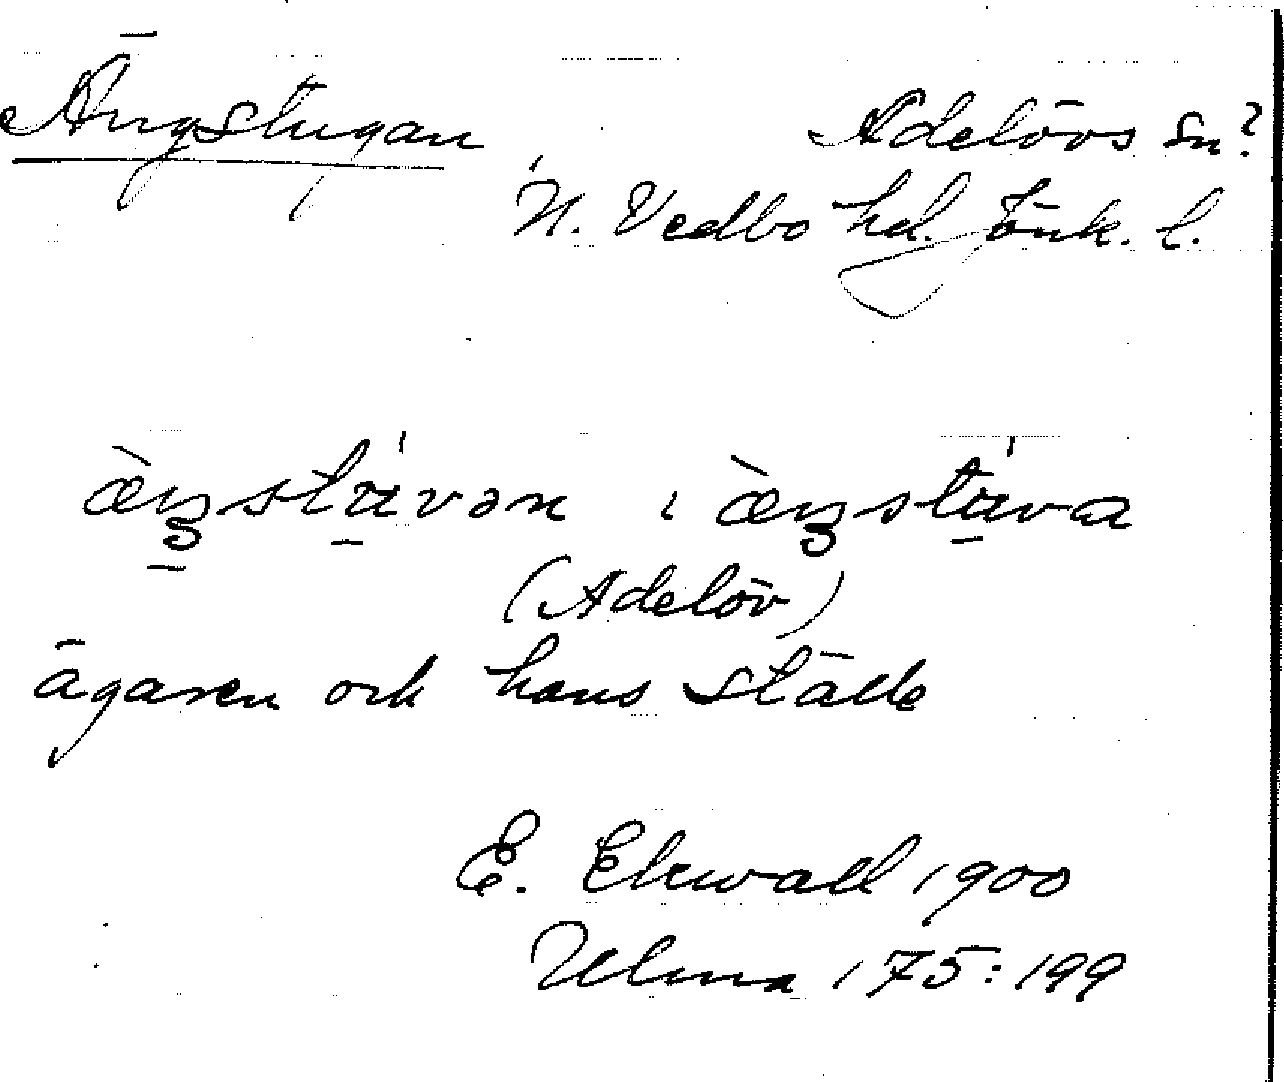 Ängstugan Adelövs sn?
N. Vedbo hd. Jönk. l.
æ̀ŋstúvən i æ̀ŋstúva
(Adelöv)
ägaren och hans ställe
E. Ekwall 1900
Ulma 175:199